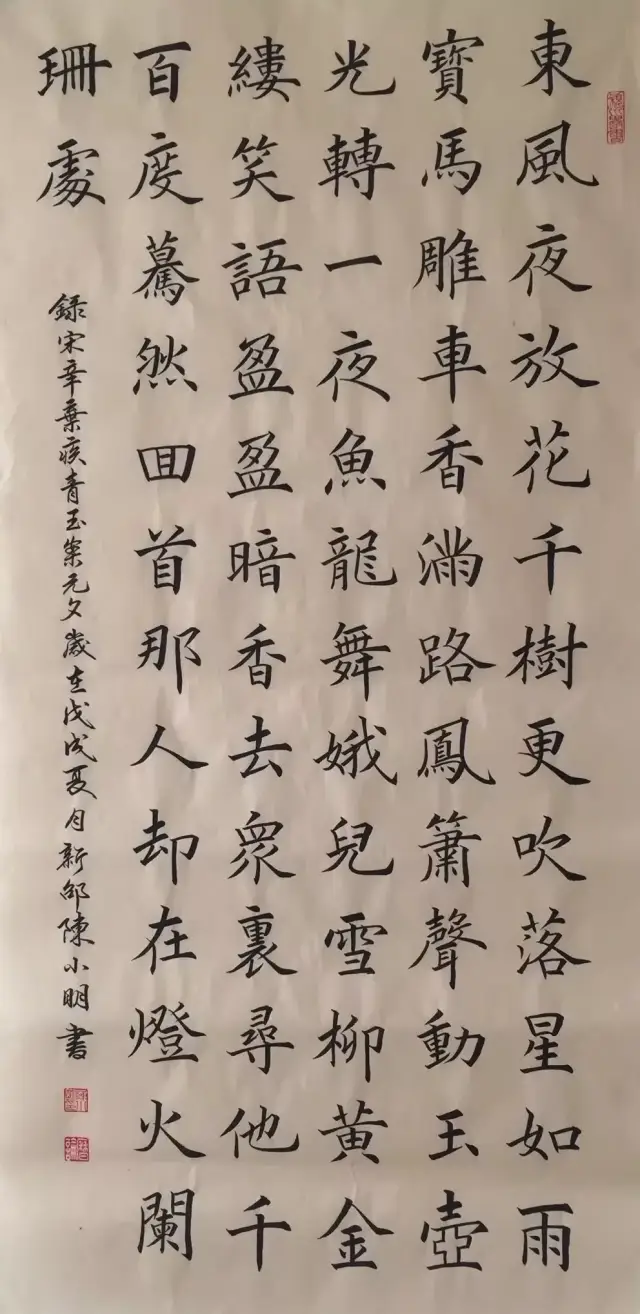 東風夜放花千樹更吹落星如雨
寶馬雕車香滿路鳳簫聲動玉壺
光轉一夜魚龍舞娥兒雪柳黃金
縷笑語盈盈暗香去眾裏尋他千
百度驀然回首那人却在燈火闌
珊處
録宋辛棄疾青玉案元夕歲在戊戌夏月新邵陳小明書